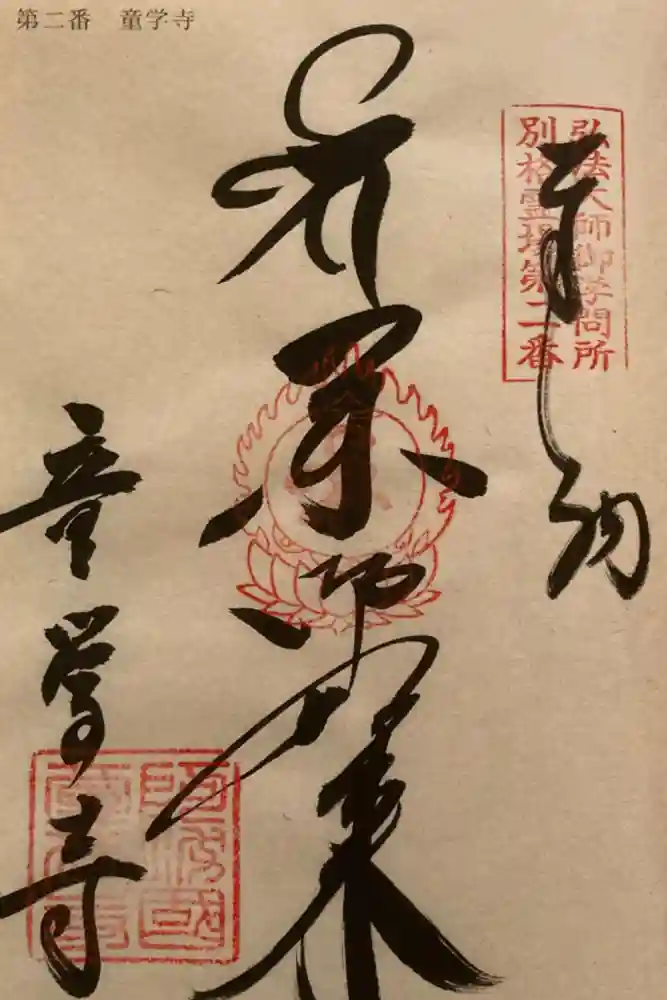 第二番　童学寺
奉納
弘法大師御学問所
別格霊場第二番
薬師如来
童學寺
阿波國